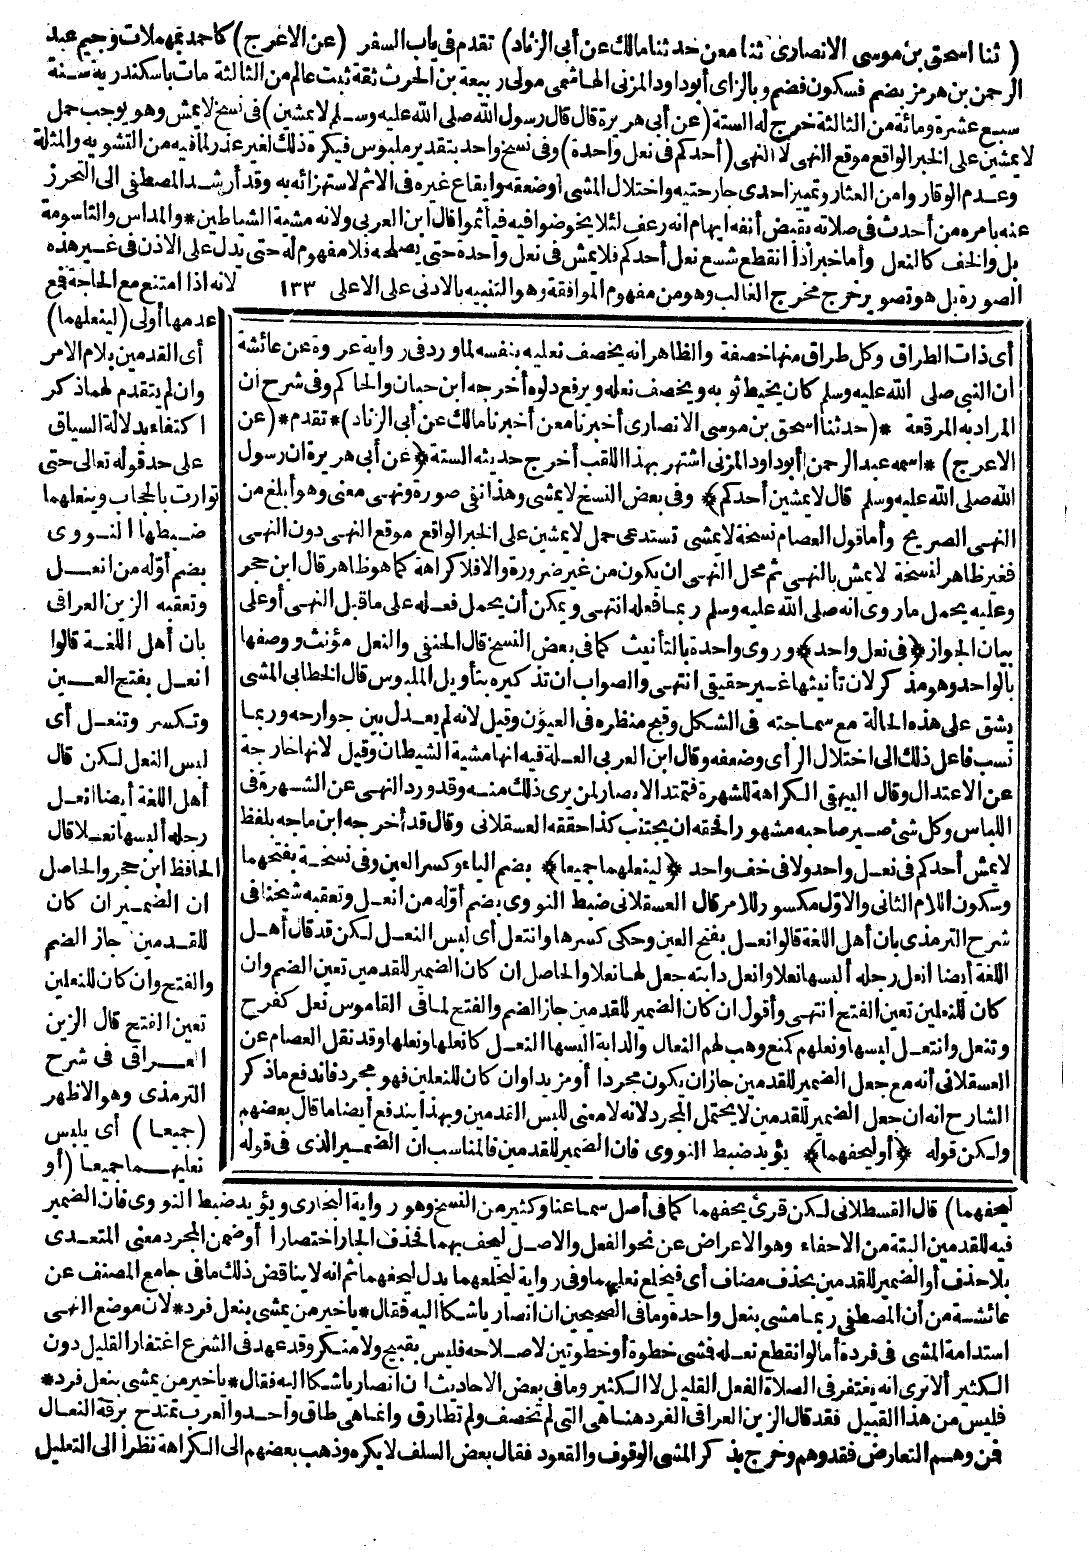 ( ثنا اسحق بن موسى الانصارى ثنا معن حدثنا مالك عن أبى الزناد) تقدم فى باب السفر (عن الاعرج) كاحمد بمهملات وجيم عبد
الرحمن بن هرمز بضم فسكون فضم وبالزاى أبو داود المزنى الهاشمى مولى ربيعة بن الحرث ثقة ثبت عالم من الثالثة مات باسكندرية سنة
سبع عشرة ومائة من الثالثة خرج له الستة (عن أبى هريرة قال قال رسول الله صلى الله عليه وسلم لا يمشين) فى نسخ لا يمش وهو يوجب حمل
لا يمشين على الخبر الواقع موقع النهى لا النهى (أحدكم فى نعل واحدة) وفى نسخ واحد بتقدير ملبوس فيكره ذلك لغير عذر لما فيه من التشويه والمثلة
وعدم الوقار وامن العثار وتمييز احدى جارحتيه واختلال المشى اوضعفه وايقاع غيره فى الاثم لاستهزائه به وقد أرشد المصطفى الى التحرز
عنه بامره من أحدث فى صلاته بقبض أنفه ايهام انه رعف لئلا يخوضوا فيه فيأثموا قال ابن العربى ولانه مشية الشياطين * والمداس والتاسومة
بل والخف كالنعل وأما خبر اذا انقطع شسع نعل أحدكم فلا يمش فى نعل واحدة حتى يصلحه فلا مفهوم له حتى يدل على الاذن فى غير هذه
الصورة بل هو تصوير خرج مخرج الغالب وهو من مفهوم الموافقة وهو التنبيه بالادنى على الاعلى ١٣٣ لانه اذا امتنع مع الحاجة فمع
عدمها أولى (لينعلهما)
أى القدمين بلام الامر
وان لم يتقدم لهما ذكر
اكتفاء بدلالة السياق
على حد قوله تعالى حتى
توارت بالحجاب وينعلهما
ضبطها النووى
بضم أوله من انعل
وتعقبه الزين العراقى
بان أهل اللغة قالوا
انعل بفتح العين
وتكسر وتنعل أى
لبس النعل لكن قال
أهل اللغة أيضا انعل
رجله ألبسها نعلا قال
الحافظ ابن حجر والحاصل
ان الضمير ان كان
للقدمين جاز الضم
والفتح وان كان للنعلين
تعين الفتح قال الزين
العراقى فى شرح
الترمذى وهو الاظهر
(جميعا) أى يلبس
نعليهما جميعا (أو
أى ذات الطراق وكل طراق منها خصفة والظاهر انه يخصف نعليه بنفسه لما ورد فى رواية عروة عن عائشة
ان النبى صلى الله عليه وسلم كان يخيط ثوبه ويخصف نعله ويرفع دلوه أخرجه ابن حبان والحاكم وفى شرح ان
المراد به المرقعة *(حدثنا اسحق بن موسى الانصارى أخبرنا معن أخبرنا مالك عن أبى الزناد)* تقدم *(عن
الاعرج) * اسمه عبد الرحمن أبو داود المزنى اشتهر بهذا اللقب أخرج حديثه الستة ﴿عن أبى هريرة ان رسول
الله صلى الله عليه وسلم قال لا يمشين أحدكم﴾ وفى بعض النسخ لا يمشى وهذا نفى صورة ونهى معنى وهو أبلغ من
النهى الصريح وأما قول العصام نسخة لا يمشى تستدعى حمل لا يمشين على الخبر الواقع موقع النهى دون النهى
فغير ظاهر لنسخة لا يمش بالنهى ثم محل النهى ان يكون من غير ضرورة والا فلا كراهة كما هو ظاهر قال ابن حجر
وعليه يحمل ما روى انه صلى الله عليه وسلم ربما فعله انتهى ويمكن أن يحمل فعله على ما قبل النهى أو على
بيان الجواز ﴿فى نعل واحد﴾ وروى واحدة بالتأنيث كما فى بعض النسخ قال الحنفى والنعل مؤنث ووصفها
بالواحد وهو مذكر لان تأنيثها غير حقيقى انتهى والصواب ان تذكيره بتأويل الملبوس قال الخطابى المشى
يشق على هذه الحالة مع سماجته فى الشكل وقبح منظره فى العيون وقيل لانه لم يعدل بين جوارحه وربما
نسب فاعل ذلك الى اختلال الرأى وضعفه وقال ابن العربى العلة فيه انها مشية الشيطان وقيل لانها خارجة
عن الاعتدال وقال البيهقى الكراهة للشهرة فتمتد الابصار لمن يرى ذلك منه وقد ورد النهى عن الشهرة فى
اللباس وكل شئ صير صاحبه مشهورا فحقه ان يجتنب كذا حققه العسقلانى وقال قد أخرجه ابن ماجه بلفظ
لا يمش أحدكم فى نعل واحد ولا فى خف واحد ﴿لينعلهما جميعا﴾ بضم الياء وكسر العين وفى نسخة بفتحهما
وسكون اللام الثانى والاول مكسور للامر قال العسقلانى ضبط النووى بضم أوله من انعل وتعقبه شيخنا فى
شرح الترمذى بان أهل اللغة قالوا نعل بفتح العين وحكى كسرها وانتعل أى لبس النعل لكن قد قال أهل
اللغة أيضا انعل رجله ألبسها نعلا وانعل دابته جعل لها نعلا والحاصل ان كان الضمير للقدمين تعين الضم وان
كان للنعلين تعين الفتح انتهى وأقول ان كان الضمير للقدمين جاز الضم والفتح لما فى القاموس نعل كفرح
وتنعل وانتعل لبسها ونعلهم كمنع وهب لهم النعال والدابة البسها النعل كانعلها ونعلها وقد نقل العصام عن
العسقلانى أنه مع جعل الضمير للقدمين جاز ان يكون مجردا أو مزيدا وان كان للنعلين فهو مجرد فاندفع ما ذكر
الشارح انه ان جعل الضمير للقدمين لا يحتمل المجرد لانه لا معنى للبس القدمين وبهذا يندفع أيضا ما قال بعضهم
ولكن قوله ﴿أو ليحفهما﴾ يؤيد ضبط النووى فان الضمير للقدمين فالمناسب ان الضمير الذى فى قوله
ليحفهما) قال القسطلانى لكن قرئ يحفهما كما فى أصل سماعنا وكثير من النسخ وهو رواية البخارى ويؤيد ضبط النووى فان الضمير
فيه للقدمين البتة من الاحفاء وهو الاعراض عن نحو الفعل والاصل ليحف بهما فحذف الجار اختصارا أو ضمن المجرد معنى المتعدى
بلا حذف أو الضمير للقدمين بحذف مضاف أى فيخلع نعليهما وفى رواية ليخلعهما بدل ليحفهما ثم انه لا يناقض ذلك ما فى جامع المصنف عن
عائشة من أن المصطفى ربما مشى بنعل واحدة وما فى الصحيحين ان انصاريا شكا اليه فقال * يا خير من يمشى بنعل فرد * لان موضع النهى
استدامة المشى فى فردة أما لو انقطع نعله فمشى خطوة أو خطوتين لاصلاحه فليس بقبيح ولا منكر وقد عهد فى الشرع اغتفار القليل دون
الكثير ألا ترى انه يغتفر فى الصلاة الفعل القليل لا الكثير وما فى بعض الاحاديث ان انصاريا شكا اليه فقال * يا خير من يمشى بنعل فرد *
فليس من هذا القبيل فقد قال الزين العراقى الفرد هنا هى التى لم تخصف ولم تطارق وانما هى طاق واحد والعرب تمتدح برقة النعال
فمن وهم التعارض فقد وهم وخرج بذكر المشى الوقوف والقعود فقال بعض السلف لا يكره وذهب بعضهم الى الكراهة نظرا الى التعليل